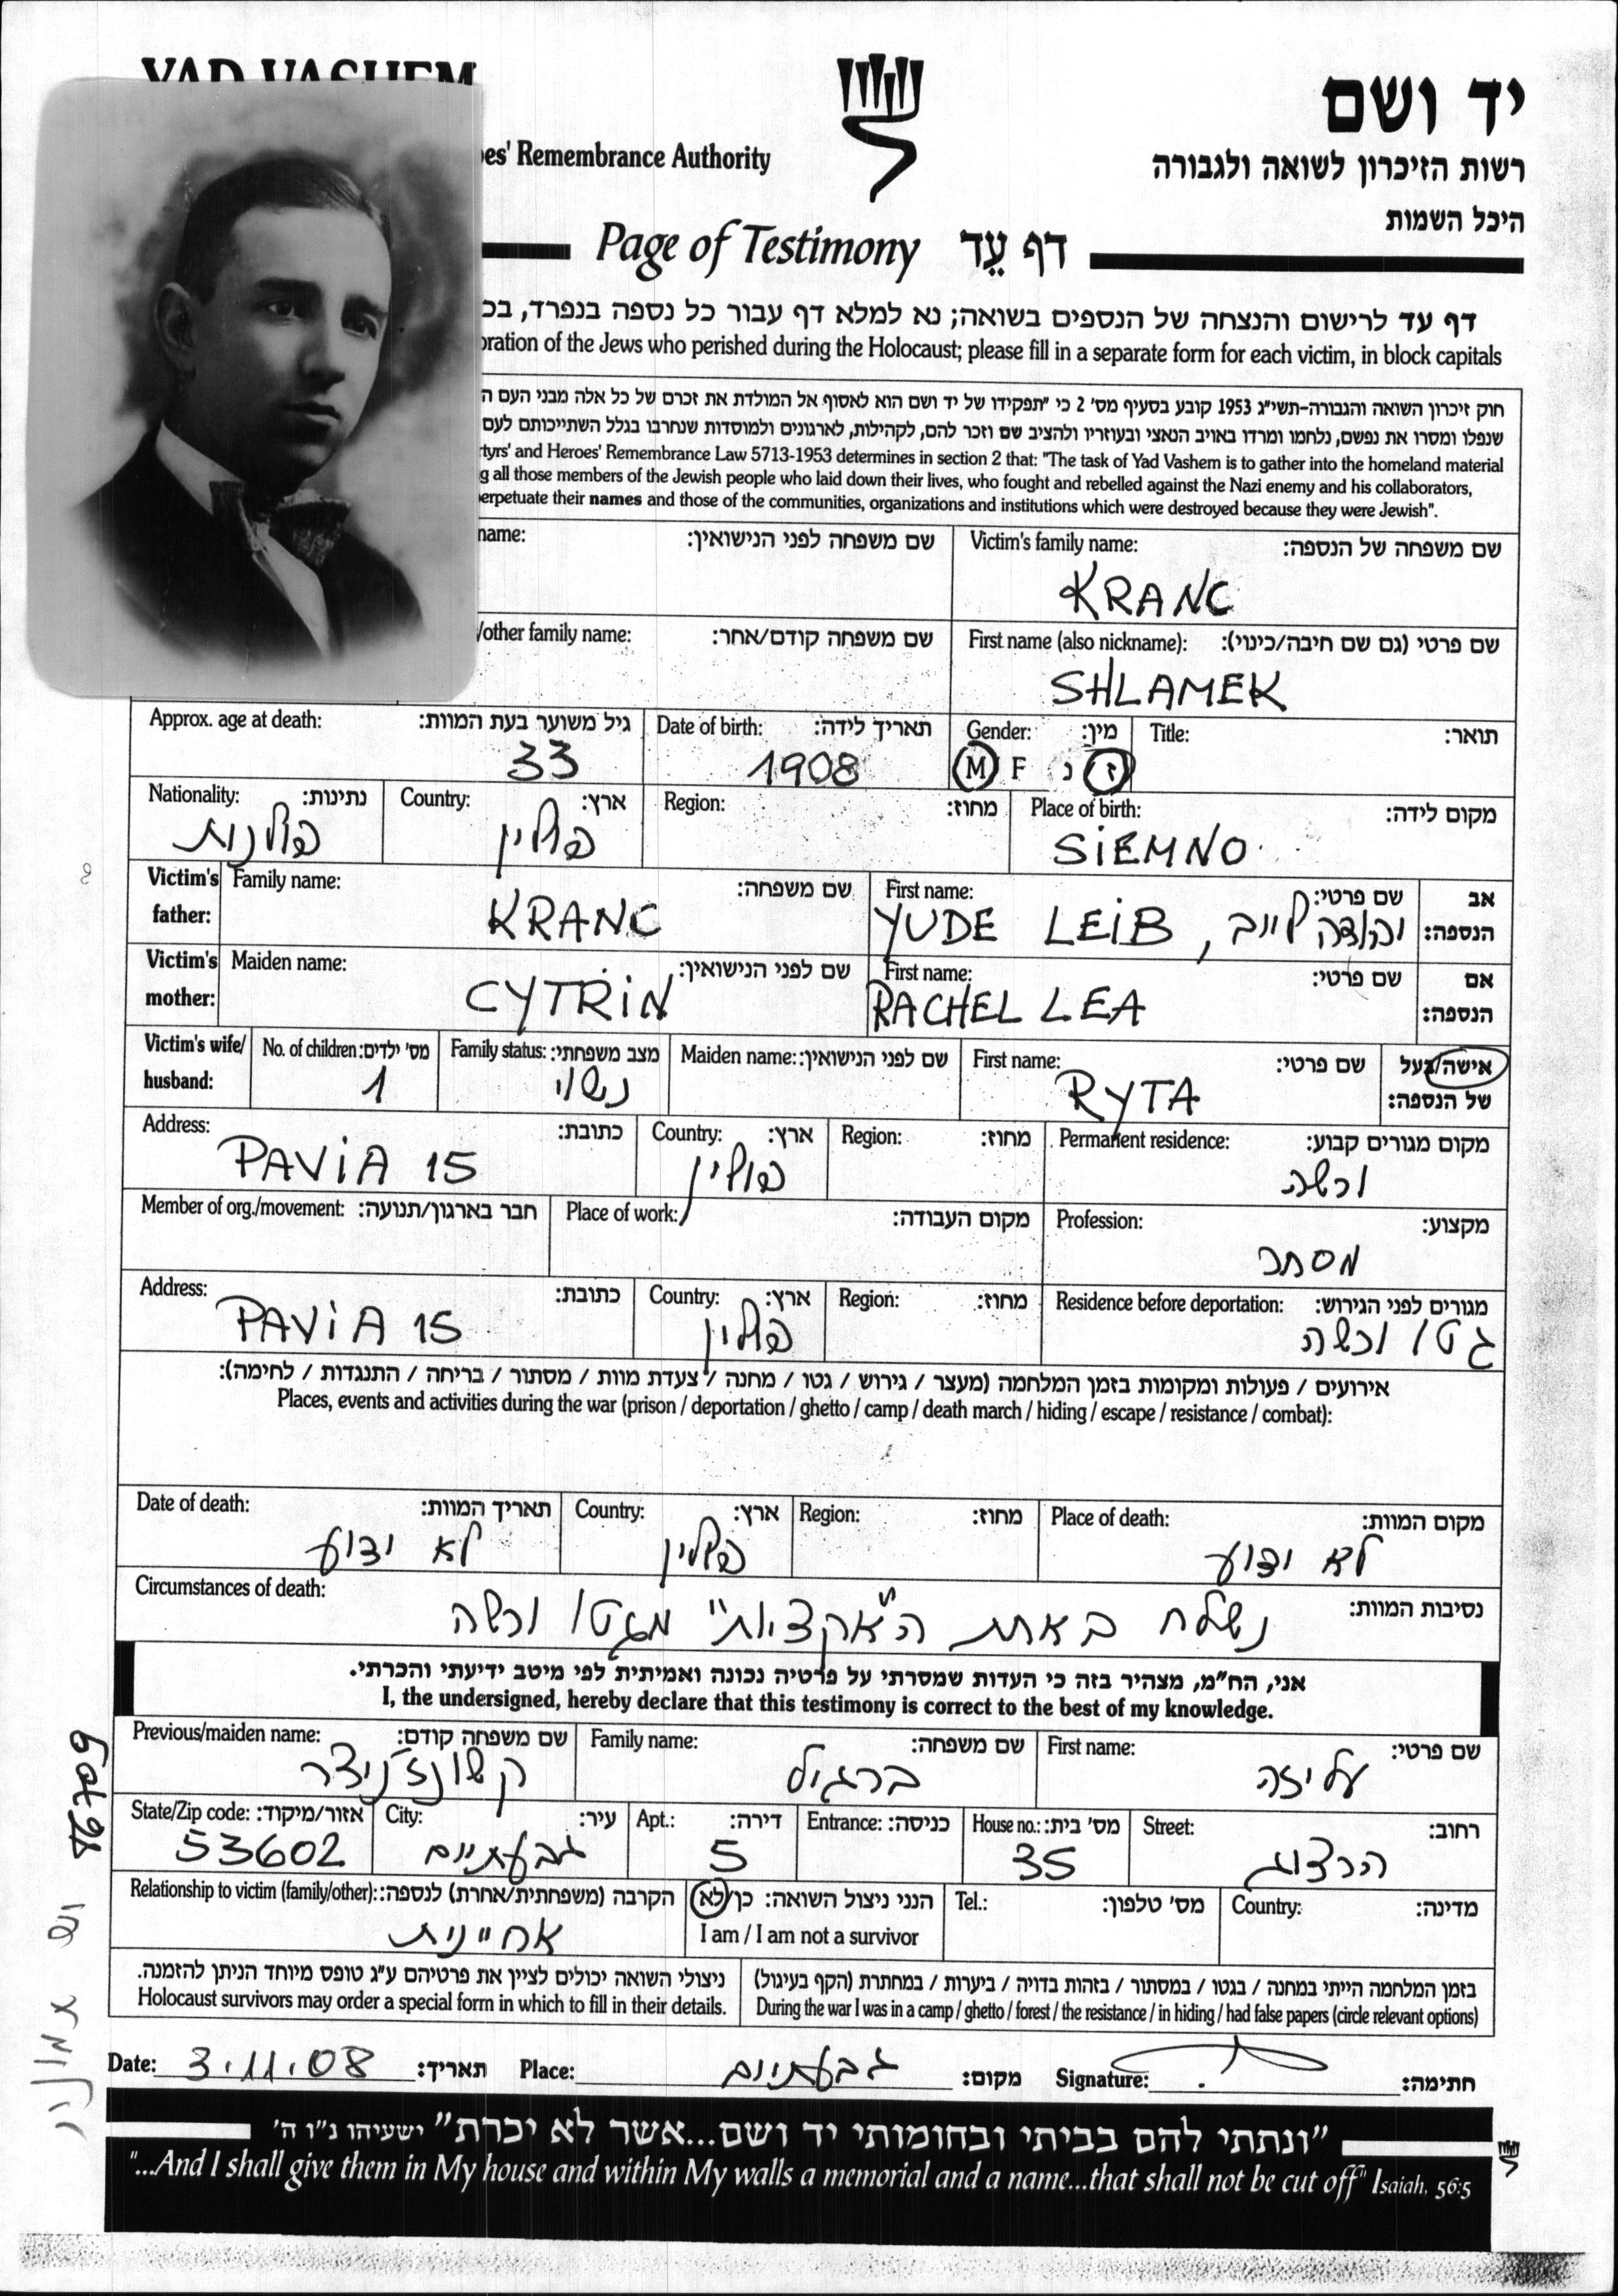 YAD VASHEM
יד ושם
es' Remembrance Authority
רשות הזיכרון לשואה ולגבורה
היכל השמות
Page of Testimony דף עֵד
דף עד לרישום והנצחה של הנספים בשואה; נא למלא דף עבור כל נספה בנפרד, בכ
oration of the Jews who perished during the Holocaust; please fill in a separate form for each victim, in block capitals
חוק זיכרון השואה והגבורה-תשי״ג 1953 קובע בסעיף מס׳ 2 כי ״תפקידו של יד ושם הוא לאסוף אל המולדת את זכרם של כל אלה מבני העם ה
שנפלו ומסרו את נפשם, נלחמו ומרדו באויב הנאצי ובעוזריו ולהציב שם וזכר להם, לקהילות, לארגונים ולמוסדות שנחרבו בגלל השתייכותם לעם
rtyrs' and Heroes' Remembrance Law 5713-1953 determines in section 2 that: "The task of Yad Vashem is to gather into the homeland material
g all those members of the Jewish people who laid down their lives, who fought and rebelled against the Nazi enemy and his collaborators,
erpetuate their names and those of the communities, organizations and institutions which were destroyed because they were Jewish".
name: שם משפחה לפני הנישואין: Victim's family name: שם משפחה של הנספה:
KRANC
/other family name: שם משפחה קודם/אחר: First name (also nickname): שם פרטי (גם שם חיבה/כינוי):
SHLAMEK
Approx. age at death: גיל משוער בעת המוות: Date of birth: תאריך לידה: Gender: מין: Title: תואר:
33 1908 M F נ ז
Nationality: נתינות: Country: ארץ: Region: מחוז: Place of birth: מקום לידה:
פולנית פולין SIEMNO
Victim's father: Family name: שם משפחה: First name: שם פרטי: אב הנספה:
KRANC YUDE LEIB, יהודה לייב
Victim's mother: Maiden name: שם לפני הנישואין: First name: שם פרטי: אם הנספה:
CYTRIN RACHEL LEA
Victim's wife/husband: No. of children: מס׳ ילדים: Family status: מצב משפחתי: Maiden name: שם לפני הנישואין: First name: שם פרטי: אישה/בעל של הנספה:
1 נשוי RYTA
Address: כתובת: Country: ארץ: Region: מחוז: Permanent residence: מקום מגורים קבוע:
PAVIA 15 פולין ורשה
Member of org./movement: חבר בארגון/תנועה: Place of work: מקום העבודה: Profession: מקצוע:
מסחר
Address: כתובת: Country: ארץ: Region: מחוז: Residence before deportation: מגורים לפני הגירוש:
PAVIA 15 פולין גטו ורשה
אירועים / פעולות ומקומות בזמן המלחמה (מעצר / גירוש / גטו / מחנה / צעדת מוות / מסתור / בריחה / התנגדות / לחימה):
Places, events and activities during the war (prison / deportation / ghetto / camp / death march / hiding / escape / resistance / combat):
Date of death: תאריך המוות: Country: ארץ: Region: מחוז: Place of death: מקום המוות:
לא ידוע פולין לא ידוע
Circumstances of death: נסיבות המוות:
נשלח באחת ה"אקציות" מגטו ורשה
אני, הח״מ, מצהיר בזה כי העדות שמסרתי על פרטיה נכונה ואמיתית לפי מיטב ידיעתי והכרתי.
I, the undersigned, hereby declare that this testimony is correct to the best of my knowledge.
Previous/maiden name: שם משפחה קודם: Family name: שם משפחה: First name: שם פרטי:
ברגיל עליזה
State/Zip code: אזור/מיקוד: City: עיר: Apt.: דירה: Entrance: כניסה: House no.: מס׳ בית: Street: רחוב:
53602 גבעתיים 5 35 הרצוג
Relationship to victim (family/other): הקרבה (משפחתית/אחרת) לנספה: הנני ניצול השואה: כן/לא Tel.: מס׳ טלפון: Country: מדינה:
אחיינית I am / I am not a survivor
ניצולי השואה יכולים לציין את פרטיהם ע״ג טופס מיוחד הניתן להזמנה. בזמן המלחמה הייתי במחנה / בגטו / במסתור / בזהות בדויה / ביערות / במחתרת (הקף בעיגול)
Holocaust survivors may order a special form in which to fill in their details. During the war I was in a camp / ghetto / forest / the resistance / in hiding / had false papers (circle relevant options)
Date: 3.11.08 תאריך: Place: גבעתיים מקום: Signature: חתימה:
״ונתתי להם בביתי ובחומותי יד ושם...אשר לא יכרת״ ישעיהו נ״ו ה׳
"...And I shall give them in My house and within My walls a memorial and a name...that shall not be cut off" Isaiah, 56:5